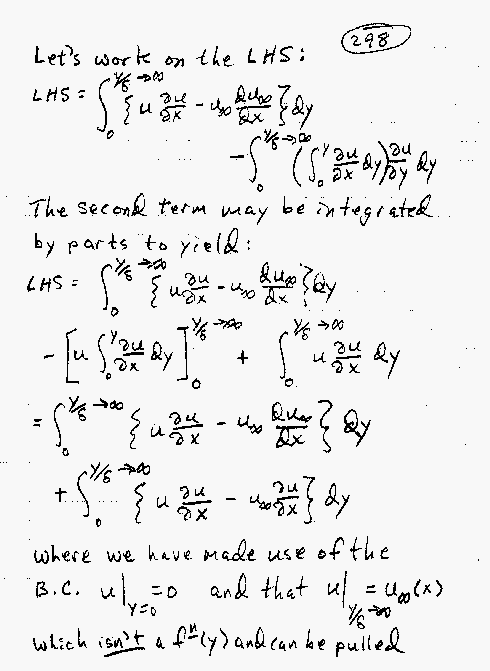 298
Let's work on the LHS:
LHS = ∫₀^{y/δ→∞} { u ∂u/∂x - u∞ du∞/dx } dy
- ∫₀^{y/δ→∞} ( ∫₀^y ∂u/∂x dy ) ∂u/∂y dy
The second term may be integrated
by parts to yield:
LHS = ∫₀^{y/δ→∞} { u ∂u/∂x - u∞ du∞/dx } dy
- [ u ∫₀^y ∂u/∂x dy ]₀^{y/δ→∞} + ∫₀^{y/δ→∞} u ∂u/∂x dy
= ∫₀^{y/δ→∞} { u ∂u/∂x - u∞ du∞/dx } dy
+ ∫₀^{y/δ→∞} { u ∂u/∂x - u∞ ∂u/∂x } dy
where we have made use of the
B.C. u|_{y=0} = 0 and that u|_{y/δ→∞} = u∞(x)
which isn't a fⁿ(y) and can be pulled